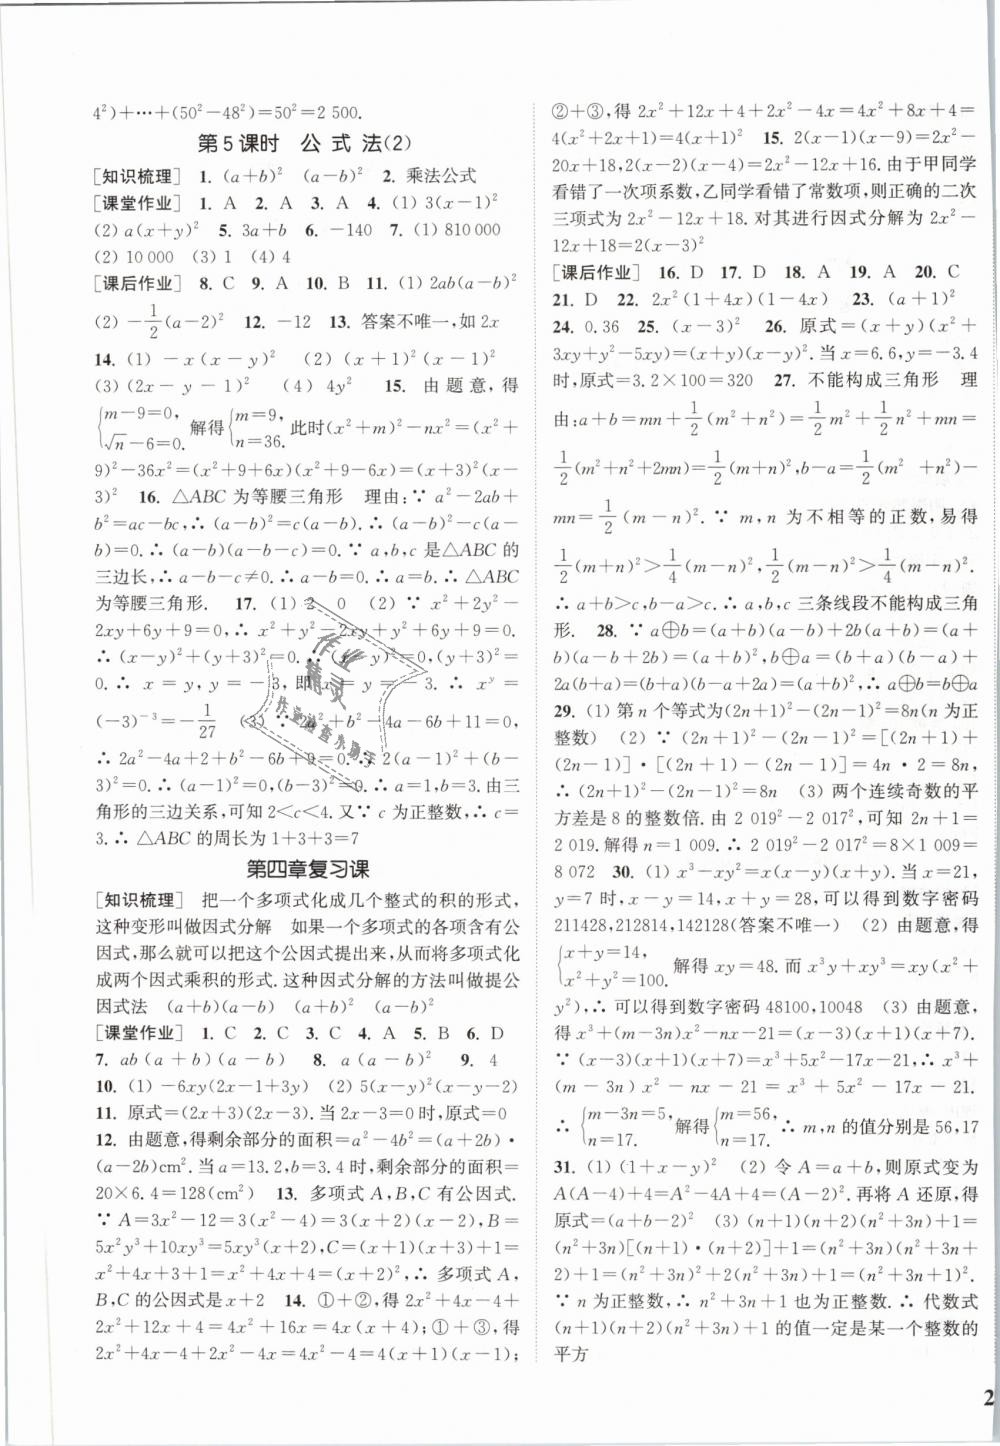 4²)+…+(50²-48²)=50²=2 500.
第5课时 公式法(2)
[知识梳理] 1. (a+b)² (a-b)² 2. 乘法公式
[课堂作业] 1. A 2. A 3. A 4. (1) 3(x-1)²
(2) a(x+y)² 5. 3a+b 6. -140 7. (1) 810 000
(2) 10 000 (3) 1 (4) 4
[课后作业] 8. C 9. A 10. B 11. (1) 2ab(a-b)²
(2) -1/2(a-2)² 12. -12 13. 答案不唯一,如2x
14. (1) -x(x-y)² (2) (x+1)²(x-1)²
(3) (2x-y-1)² (4) 4y² 15. 由题意,得
{m-9=0, √n-6=0. 解得{m=9, n=36. 此时(x²+m)²-nx²=(x²+
9)²-36x²=(x²+9+6x)(x²+9-6x)=(x+3)²(x-
3)² 16. △ABC为等腰三角形 理由:∵ a²-2ab+
b²=ac-bc,∴ (a-b)²=c(a-b). ∴ (a-b)²-c(a-
b)=0. ∴ (a-b)(a-b-c)=0. ∵ a,b,c是△ABC的
三边长,∴ a-b-c≠0. ∴ a-b=0. ∴ a=b. ∴ △ABC
为等腰三角形. 17. (1) 2 0 (2) ∵ x²+2y²-
2xy+6y+9=0,∴ x²+y²-2xy+y²+6y+9=0.
∴ (x-y)²+(y+3)²=0. ∴ (x-y)²=0,(y+3)²=
0. ∴ x=y,y=-3,即x=y=-3. ∴ xʸ=
(-3)⁻³=-1/27 (3) ∵ 2a²+b²-4a-6b+11=0,
∴ 2a²-4a+2+b²-6b+9=0. ∴ 2(a-1)²+(b-
3)²=0. ∴ (a-1)²=0,(b-3)²=0. ∴ a=1,b=3. 由三
角形的三边关系,可知2<c<4. 又∵ c为正整数,∴ c=
3. ∴ △ABC的周长为1+3+3=7
第四章复习课
[知识梳理] 把一个多项式化成几个整式的积的形式,
这种变形叫做因式分解 如果一个多项式的各项含有公
因式,那么就可以把这个公因式提出来,从而将多项式化
成两个因式乘积的形式. 这种因式分解的方法叫做提公
因式法 (a+b)(a-b) (a+b)² (a-b)²
[课堂作业] 1. C 2. C 3. C 4. A 5. B 6. D
7. ab(a+b)(a-b) 8. a(a-b)² 9. 4
10. (1) -6xy(2x-1+3y) (2) 5(x-y)²(x-y-2)
11. 原式=(2x+3)(2x-3). 当2x-3=0时,原式=0
12. 由题意,得剩余部分的面积=a²-4b²=(a+2b)·
(a-2b)cm². 当a=13.2,b=3.4时,剩余部分的面积=
20×6.4=128(cm²) 13. 多项式A,B,C有公因式.
∵ A=3x²-12=3(x²-4)=3(x+2)(x-2),B=
5x²y³+10xy³=5xy³(x+2),C=(x+1)(x+3)+1=
x²+4x+3+1=x²+4x+4=(x+2)²,∴ 多项式A,
B,C的公因式是x+2 14. ①+②,得2x²+4x-4+
2x²+12x+4=4x²+16x=4x(x+4);①+③,得
2x²+4x-4+2x²-4x=4x²-4=4(x+1)(x-1);
②+③,得2x²+12x+4+2x²-4x=4x²+8x+4=
4(x²+2x+1)=4(x+1)² 15. 2(x-1)(x-9)=2x²-
20x+18,2(x-2)(x-4)=2x²-12x+16. 由于甲同学
看错了一次项系数,乙同学看错了常数项,则正确的二次
三项式为2x²-12x+18. 对其进行因式分解为2x²-
12x+18=2(x-3)²
[课后作业] 16. D 17. D 18. A 19. A 20. C
21. D 22. 2x²(1+4x)(1-4x) 23. (a+1)²
24. 0.36 25. (x-3)² 26. 原式=(x+y)(x²+
3xy+y²-5xy)=(x+y)(x-y)². 当x=6.6,y=-3.4
时,原式=3.2×100=320 27. 不能构成三角形 理
由:a+b=mn+1/2(m²+n²)=1/2m²+1/2n²+mn=
1/2(m²+n²+2mn)=1/2(m+n)²,b-a=1/2(m² +n²)-
mn=1/2(m-n)². ∵ m,n为不相等的正数,易得
1/2(m+n)²>1/4(m-n)²,1/2(m-n)²>1/4(m-n)².
∴ a+b>c,b-a>c. ∴ a,b,c三条线段不能构成三角
形. 28. ∵ a⊕b=(a+b)(a-b)+2b(a+b)=(a+
b)(a-b+2b)=(a+b)²,b⊕a=(b+a)(b-a)+
2a(b+a)=(b+a)(b-a+2a)=(a+b)²,∴ a⊕b=b⊕a
29. (1) 第n个等式为(2n+1)²-(2n-1)²=8n(n为正
整数) (2) ∵ (2n+1)²-(2n-1)²=[(2n+1)+
(2n-1)]·[(2n+1)-(2n-1)]=4n·2=8n,
∴ (2n+1)²-(2n-1)²=8n (3) 两个连续奇数的平
方差是8的整数倍. 由2 019²-2 017²,可知2n+1=
2 019. 解得n=1 009. ∴ 2 019²-2 017²=8×1 009=
8 072 30. (1) x³-xy²=x(x-y)(x+y). 当x=21,
y=7时,x-y=14,x+y=28,可以得到数字密码
211428,212814,142128(答案不唯一) (2) 由题意,得
{x+y=14, x²+y²=100. 解得xy=48. 而x³y+xy³=xy(x²+
y²),∴ 可以得到数字密码48100,10048 (3) 由题意,
得x³+(m-3n)x²-nx-21=(x-3)(x+1)(x+7).
∵ (x-3)(x+1)(x+7)=x³+5x²-17x-21,∴ x³+
(m-3n)x²-nx-21=x³+5x²-17x-21.
∴ {m-3n=5, n=17. 解得{m=56, n=17. ∴ m,n的值分别是56,17
31. (1) (1+x-y)² (2) 令A=a+b,则原式变为
A(A-4)+4=A²-4A+4=(A-2)². 再将A还原,得
原式=(a+b-2)² (3) (n+1)(n+2)(n²+3n)+1=
(n²+3n)[(n+1)(n+2)]+1=(n²+3n)(n²+3n+
2)+1=(n²+3n)²+2(n²+3n)+1=(n²+3n+1)².
∵ n为正整数,∴ n²+3n+1也为正整数. ∴ 代数式
(n+1)(n+2)(n²+3n)+1的值一定是某一个整数的
平方
2
作业
精灵
作业检查小助手